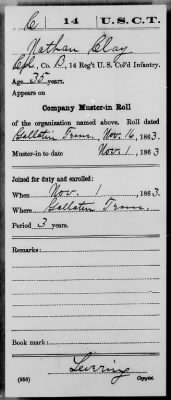 C | 14 | U.S.C.T.
Nathan Clay
Cpl, Co. D, 14 Reg't U. S. Col'd Infantry.
Age 35 years.
Appears on
Company Muster-in Roll
of the organization named above. Roll dated
Gallatin Tenn, Nov. 16, 1863.
Muster-in to date Nov. 1, 1863
Joined for duty and enrolled:
When Nov. 1, 1863.
Where Gallatin Tenn.
Period 3 years.
Remarks:
Book mark:
(356) Copyist.